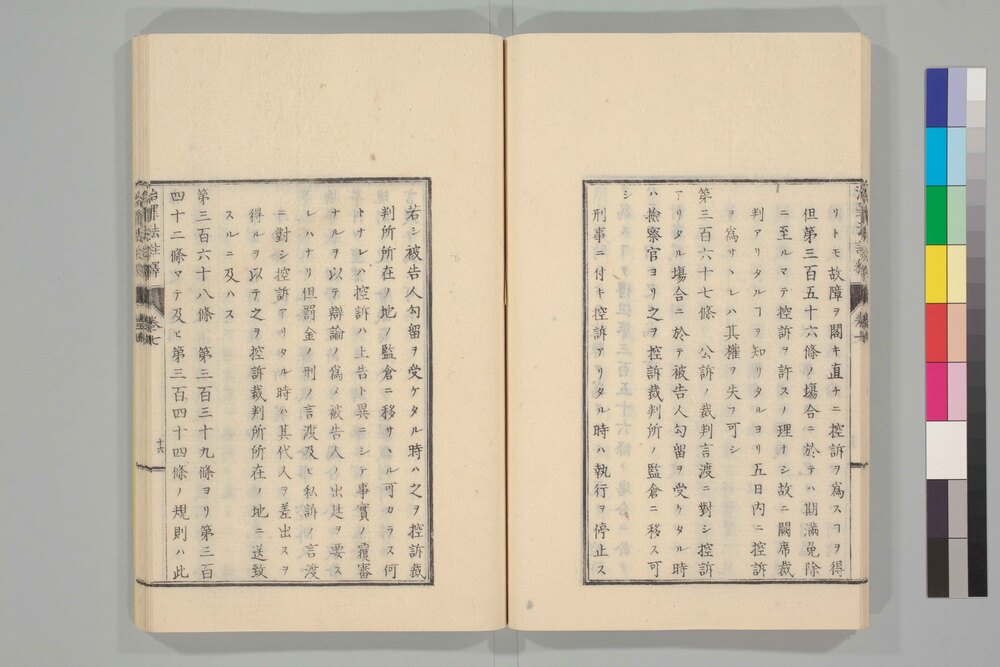 リトモ故障ヲ閣キ直チニ控訴ヲ爲スヿヲ得
但第三百五十六條ノ塲合ニ於テハ期滿免除
ニ至ルマテ控訴ヲ許スノ理ナシ故ニ闕席裁
判アリタルヿヲ知リタルヨリ五日內ニ控訴
ヲ爲サヽレハ其權ヲ失フ可シ
第三百六十七條　公訴ノ裁判言渡ニ對シ控訴
アリタル塲合ニ於テ被告人勾留ヲ受ケタル時
ハ撿察官ヨリ之ヲ控訴裁判所ノ監倉ニ移ス可
シ
刑事ニ付キ控訴アリタル時ハ執行ヲ停止ス
若シ被告人勾留ヲ受ケタル時ハ之ヲ控訴裁
判所所在ノ地ノ監倉ニ移サヽル可カラス何
トナレハ控訴ハ上告ト異ニシテ事實ノ覆審
ナルヲ以テ辯論ノ爲メ被告人ノ出廷ヲ要ス
レハナリ但罰金ノ刑ノ言渡及ヒ私訴ノ言渡
ニ對シ控訴アリタル時ハ其代人ヲ差出スヲ
得ルヲ以テ之ヲ控訴裁判所所在ノ地ニ送致
スルニ及ハス
第三百六十八條　第三百三十九條ヨリ第三百
四十二條マテ及ヒ第三百四十四條ノ規則ハ此
治罪法註釋
卷七
十六